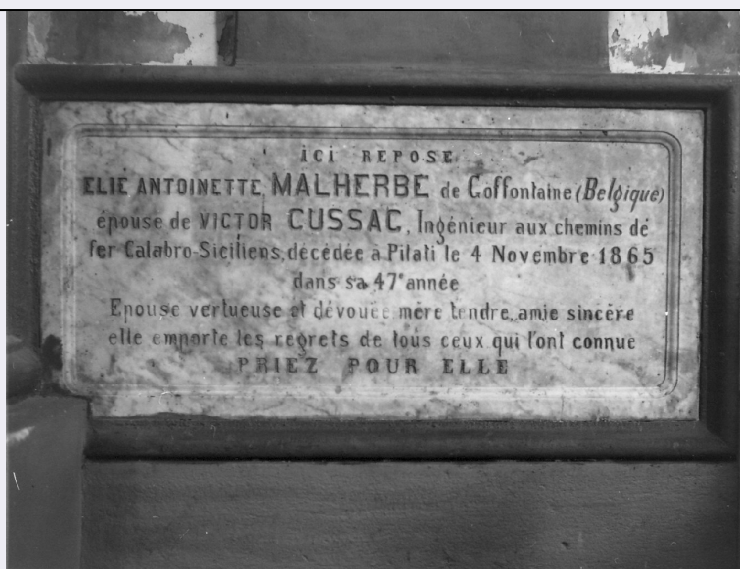 ICI REPOSE
ELIE ANTOINETTE MALHERBE de Goffontaine (Belgique)
épouse de VICTOR CUSSAC, Ingénieur aux chemins de
fer Calabro-Siciliens, décédée a Pilati le 4 Novembre 1865
dans sa 47e année
Epouse vertueuse et dévouée mère tendre, amie sincère
elle emporte les regrets de tous ceux qui l'ont connue
PRIEZ POUR ELLE